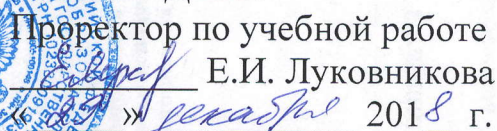 Проректор по учебной работе
Е.И. Луковникова
« » декабря 2018 г.